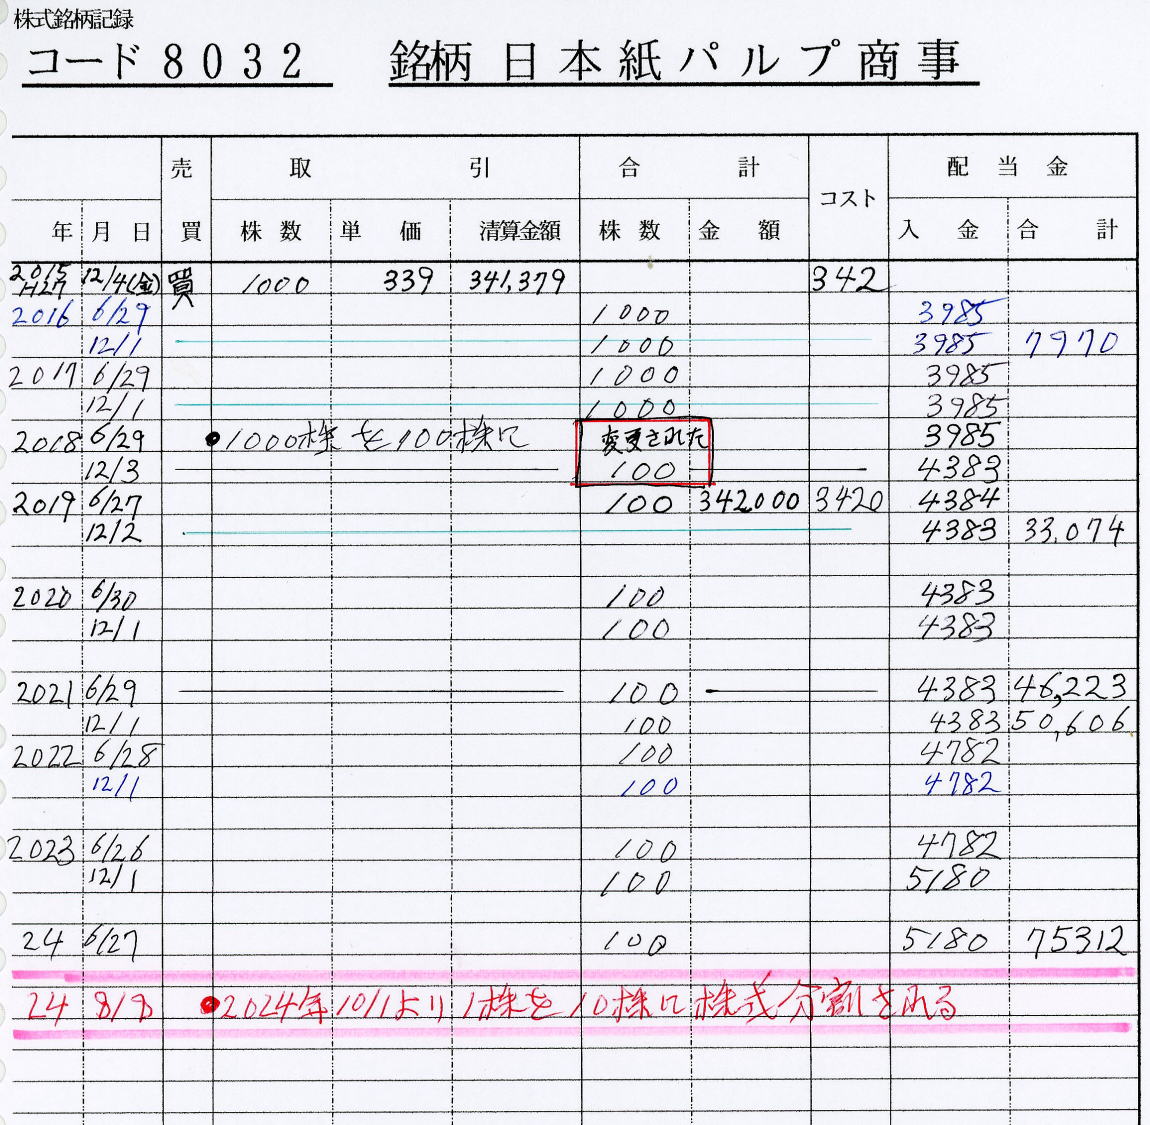 株式銘柄記録
コード 8032 銘柄 日本紙パルプ商事
売 取 引 合 計 コスト 配 当 金
年 月 日 買 株 数 単 価 清算金額 株 数 金 額 入 金 合 計
2015 H27 12/4(金) 買 1000 339 341,379 342
2016 6/29 1000 3985
12/1 1000 3985 7970
2017 6/29 1000 3985
12/1 1000 3985
2018 6/29 ●1000株を100株に 変更された 3985
12/3 100 4383
2019 6/27 100 342000 3420 4384
12/2 4383 33,074
2020 6/30 100 4383
12/1 100 4383
2021 6/29 100 4383 46,223
12/1 100 4383 50,606
2022 6/28 100 4782
12/1 100 4782
2023 6/26 100 4782
12/1 100 5180
24 6/27 100 5180 75312
24 8/8 ●2024年10/1より1株を10株に株式分割される